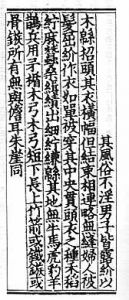 其風俗不淫男子皆露紒以
木緜招頭其衣橫幅但結束相連略無縫婦人被
髮屈紒作衣如單被穿其中央貫頭衣之種禾稻
紵麻蠶桑緝績出細紵縑緜其地無牛馬虎豹羊
鵲兵用矛楯木弓木弓短下長上竹箭或鐵鏃或
骨鏃所有無與儋耳朱崖同